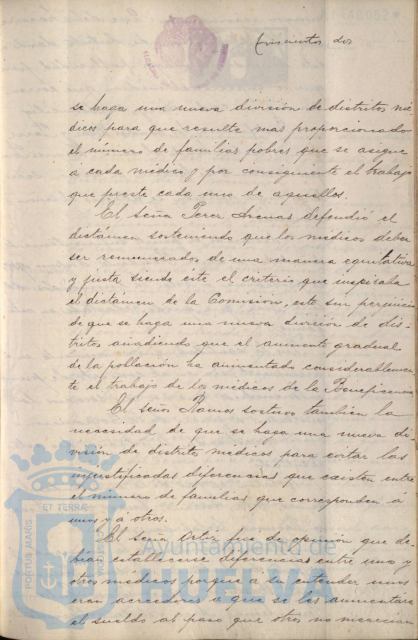 trescientos dos
se haga una nueva división de distritos mé
dicos para que resulte mas proporcionado
el número de familias pobres que se asigne
a cada médico y por consiguiente el trabajo
que preste cada uno de aquellos.
El Señor Perez defendió el
dictámen sosteniendo que los médicos deben
ser remunerados de una manera equitativa
y justa siendo éste el criterio que inspiraba
el dictámen de la Comision, esto sin perjuicio
de que se haga una nueva división de dis
tritos añadiendo que el aumento gradual
de la poblacion ha aumentado considerablemen
te el trabajo de los médicos de la Beneficencia
El Señor Ramos sostuvo tambien la
necesidad de que se haga una nueva di
visión de distritos médicos para evitar las
injustificadas diferencias que existen entre
el número de familias que corresponden á
unos y á otros.
El Señor Ortiz fue de opinión que de
bian establecerse diferencias entre uno y
otros médicos porque a su entender unos
eran acreedores á que se les aumentara
el sueldo al paso que otros no merecian
PORTUS MARIS
ET TERRAE
Ayuntamiento de
HUELVA